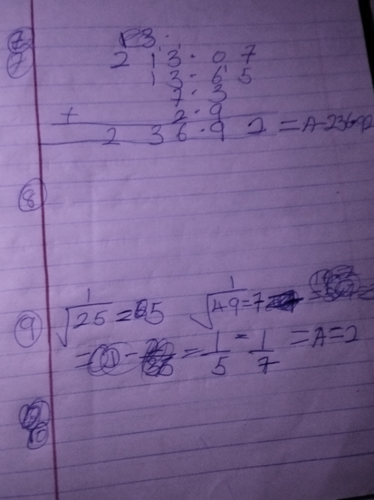 7
7 213.07
13.65
7.3
+ 2.9
236.92 = A-236.92
8
9 √1/25 = 5 √1/49 = 7
= 1/5 - 1/7 = A = 2
10